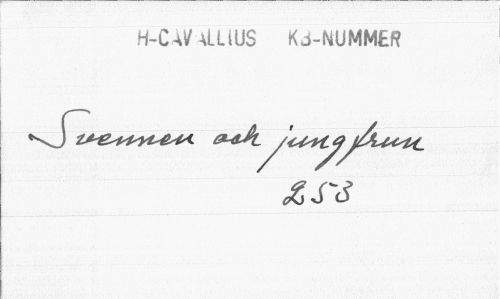 H-CAVALLIUS KB-NUMMER
Svennen och jungfrun
253